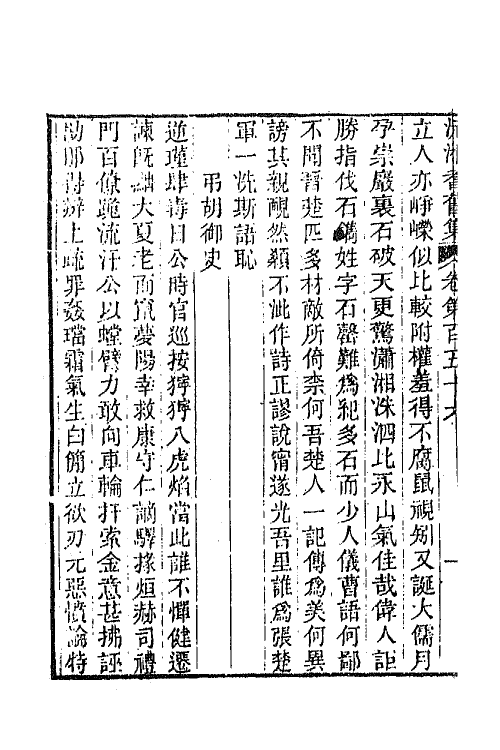 沅湘耆舊集 卷第百五十六 一
立人亦崢嶸似比較附權羞得不腐鼠視矧又誕大儒月
孕崇嚴裏石破天更驚瀟湘洙泗比永山氣佳哉偉人詎
勝指伐石鐫姓字石罄難爲紀多石而少人儀曹語何鄙
不聞晉楚匹多材敵所倚柰何吾楚人一記傳爲美何異
謗其親靦然顙不泚作詩正謬說甯遂光吾里誰爲張楚
軍一洗斯語恥
弔胡御史
逆瑾肆毒日公時官巡按獰獰八虎焰當此誰不憚健遷
諫旣黜大夏老而竄夢陽幸救康守仁謫驛掾烜赫司禮
門百僚跪流汗公以螳臂力敢向車輪扞索金意甚拂誣
劾耶得辦上疏罪姦璫霜氣生白簡立欲刃元惡憤論特